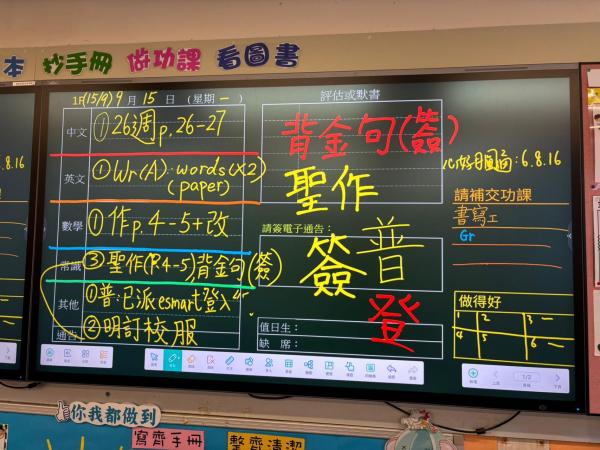 本 抄手冊 做功課 看圖書
1F(15/9) 9月15日 (星期一)
中文 ①26週p.26-27
英文 ①Wr(A)-words(x2)
(paper)
數學 ①作p.4-5+改
常識 ③聖作(P.4-5),背金句(簽)
其他 ①普:已派esmart登入
通告 ②明訂校服
評估或默書
背金句(簽)
聖作
請簽電子通告:
簽 普
登
值日生:
缺 席:
8.16
:6.8.16
請補交功課
書寫工
Gr
做得好
1 2 3 一
4 5 6 一
1/2
你我都做到
寫齊手冊
整齊清潔